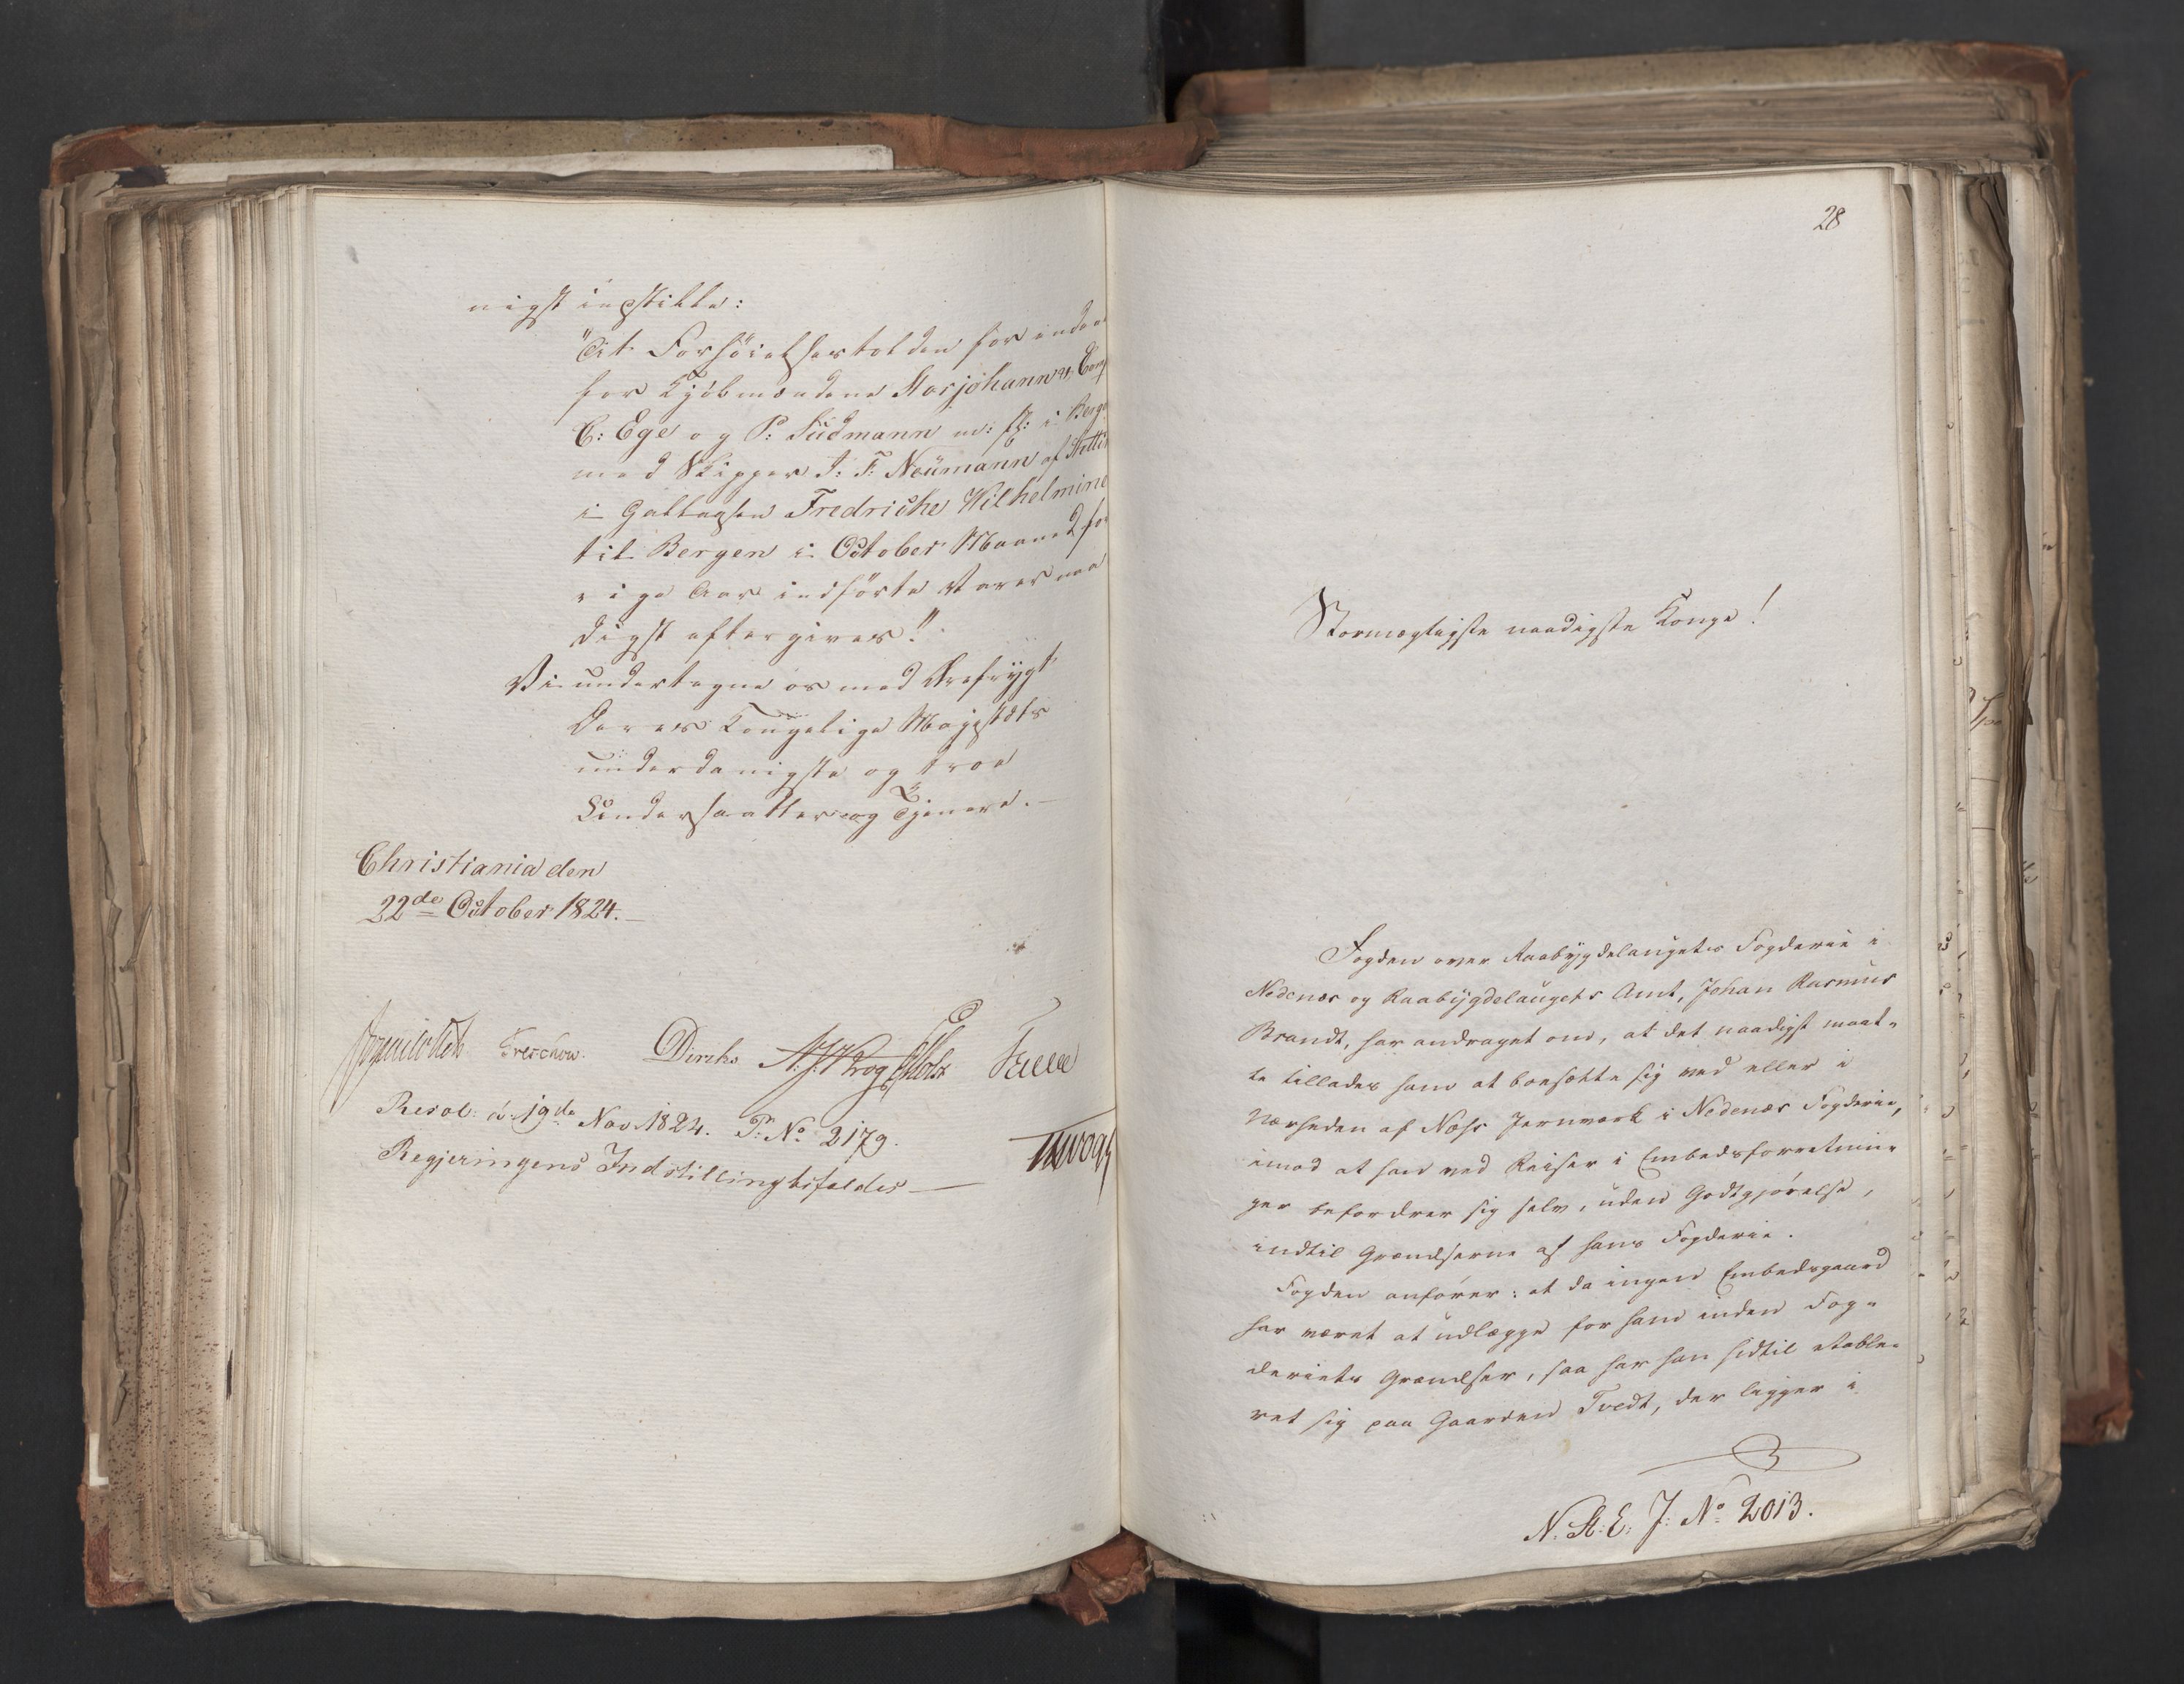 nigst indstille:
"At Forhöielsestolden for inden
for Kjöbmændene Storjohann,
C: Ege og P: Südmann m: fl: i Berge
med Skipper J: F: Neümann af Stettin
i Galleasen Fredriche Wilhelmine
til Bergen i October Maaned for
rige Aar indförte Varer naa
digst eftergives."
Vi undertegne os med Ærefrygt
Deres Kongelige Majestæts
underdanigste og troe
Undersaatter og Tjenere.
Christiania den
22de October 1824.
Treschow. Diriks Krog Holst
Resol: d: 19de Nov 1824. P: No 2179.
Regjeringens Indstilling bifaldes
28
Stormægtigste naadigste Konge!
Fogden over Raabygdelaugets Fogderie i
Nedenæs og Raabygdelaugets Amt, Johan Rasmus
Brandt, har andraget om, at det naadigst maat-
te tillades ham at boesætte sig ved eller i
Nærheden af Næss Jernværk i Nedenæs Fogderie,
imod at han ved Reiser i Embedsforretnin-
ger befordrer sig selv, uden Godtgjörelse,
indtil Grændserne af hans Fogderie.
Fogden anförer: at da ingen Embedsgaard
har været at udlægge for ham inden Fog-
deriets Grændser, saa har han hidtil etable-
ret sig paa Gaarden Tvedt, der ligger i
N. St: E: J: No 2013.